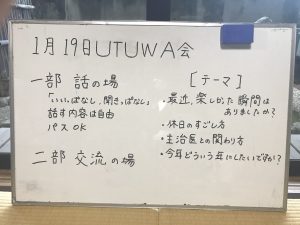 1月19日UTUWA会
一部 話の場
「いい、ぱなし、聞き、ぱなし」
話す内容は自由
パス OK
二部 交流の場
[テーマ]
・最近、楽しかった瞬間は
ありましたか?
・休日のすごし方
・主治医との関わり方
・今年どういう年にしたいですか?